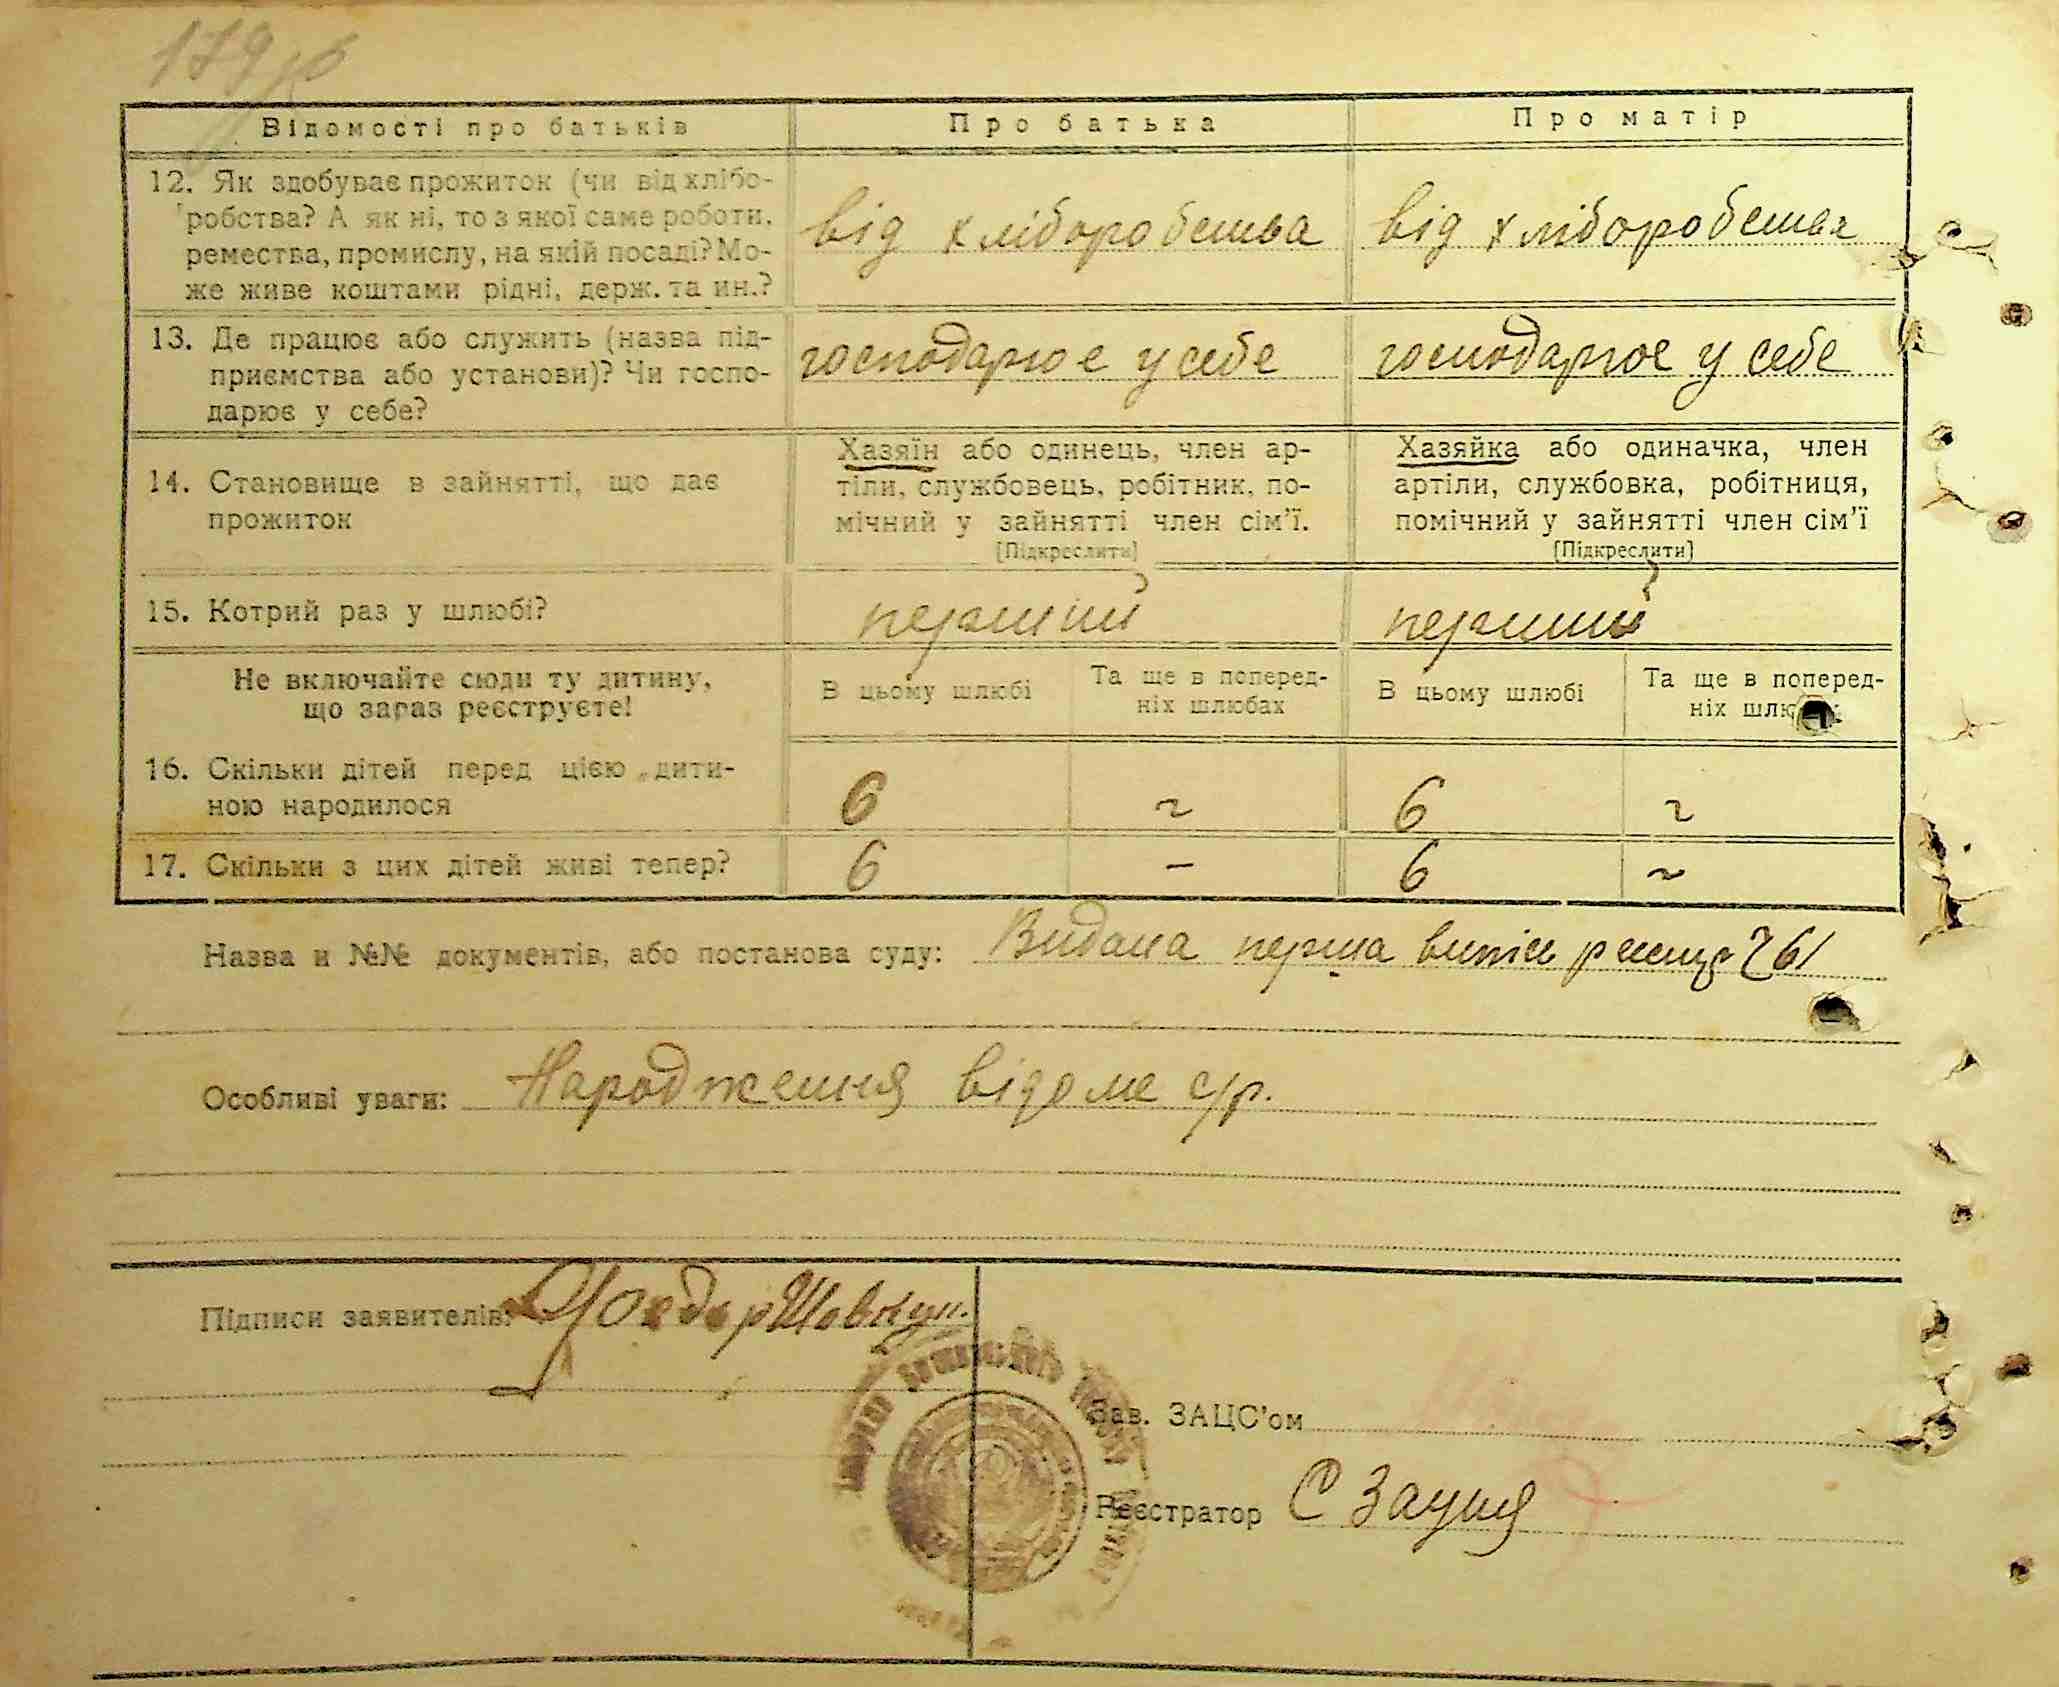 179
Відомості про батьків
Про батька
Про матір
12. Як здобуває прожиток (чи від хлібо-
робства? А як ні, то з якої саме роботи,
ремества, промислу, на якій посаді? Мо-
же живе коштами рідні, держ. та ин.?
від хліборобства
від хліборобства
13. Де працює або служить (назва під-
приємства або установи)? Чи госпо-
дарює у себе?
господарює у себе
господарює у себе
14. Становище в зайнятті, що дає
прожиток
Хазяїн або одинець, член ар-
тіли, службовець, робітник, по-
мічний у зайнятті член сім'ї.
[Підкреслити]
Хазяйка або одиначка, член
артіли, службовка, робітниця,
помічний у зайнятті член сім'ї
[Підкреслити]
15. Котрий раз у шлюбі?
перший
перший
Не включайте сюди ту дитину,
що зараз реєструєте!
В цьому шлюбі
Та ще в поперед-
ніх шлюбах
В цьому шлюбі
Та ще в поперед-
ніх
16. Скільки дітей перед цією дити-
ною народилося
6
~
6
~
17. Скільки з цих дітей живі тепер?
6
–
6
~
Назва и №№ документів, або постанова суду: Видана перша випис 261
Особливі уваги: Народження відоме с/р.
Підписи заявителів: Шовкун
Зав. ЗАЦС'ом
Реєстратор С Зауця